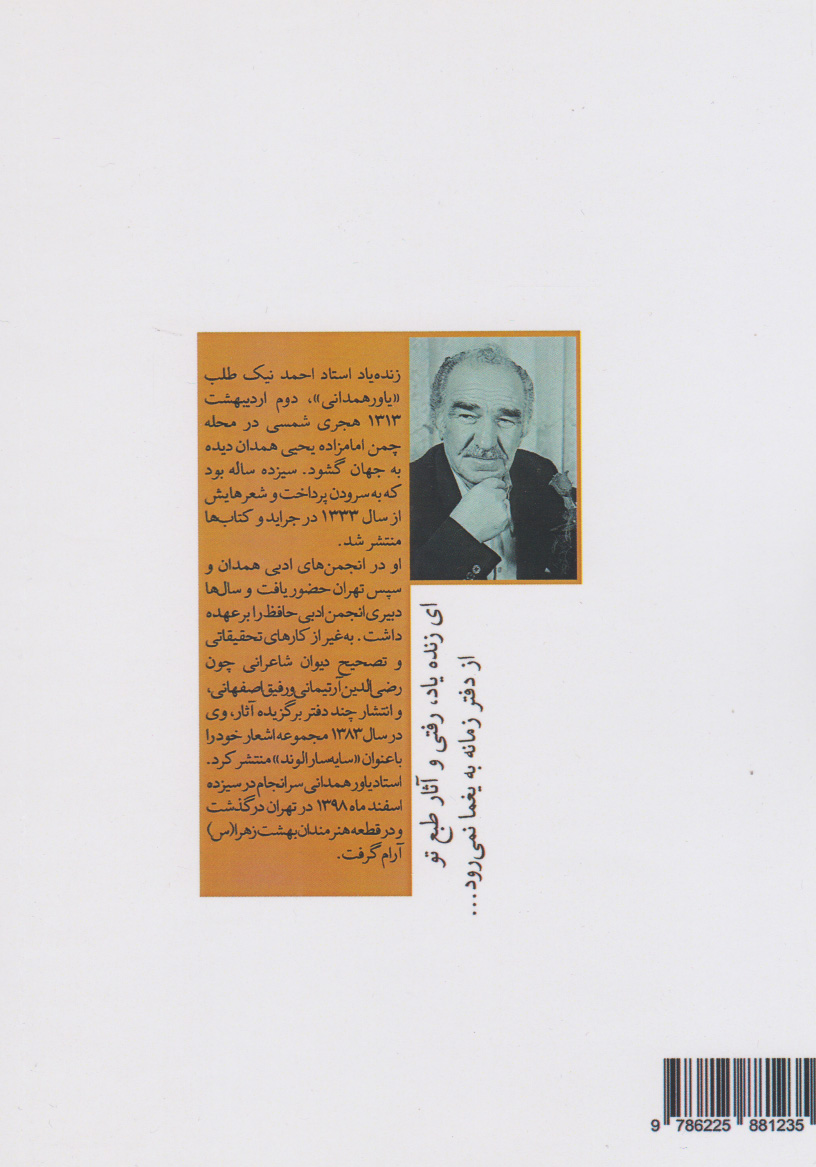 زنده‌یاد استاد احمد نیک طلب
«یاور همدانی»، دوم اردیبهشت
۱۳۱۳ هجری شمسی در محله
چمن امامزاده یحیی همدان دیده
به جهان گشود. سیزده ساله بود
که به سرودن پرداخت و شعرهایش
از سال ۱۳۳۳ در جراید و کتاب‌ها
منتشر شد.
او در انجمن‌های ادبی همدان و
سپس تهران حضور یافت و سال‌ها
دبیری انجمن ادبی حافظ را بر عهده
داشت. به غیر از کارهای تحقیقاتی
و تصحیح دیوان شاعرانی چون
رضی‌الدین آرتیمانی و رفیق اصفهانی،
و انتشار چند دفتر برگزیده آثار، وی
در سال ۱۳۸۳ مجموعه اشعار خود را
با عنوان «سایه‌سار الوند» منتشر کرد.
استاد یاور همدانی سرانجام در سیزده
اسفند ماه ۱۳۹۸ در تهران درگذشت
و در قطعه هنرمندان بهشت زهرا(س)
آرام گرفت.
ای زنده یاد، رفتی و آثار طبع تو
از دفتر زمانه به یغما نمی‌رود...
9 786225 881235